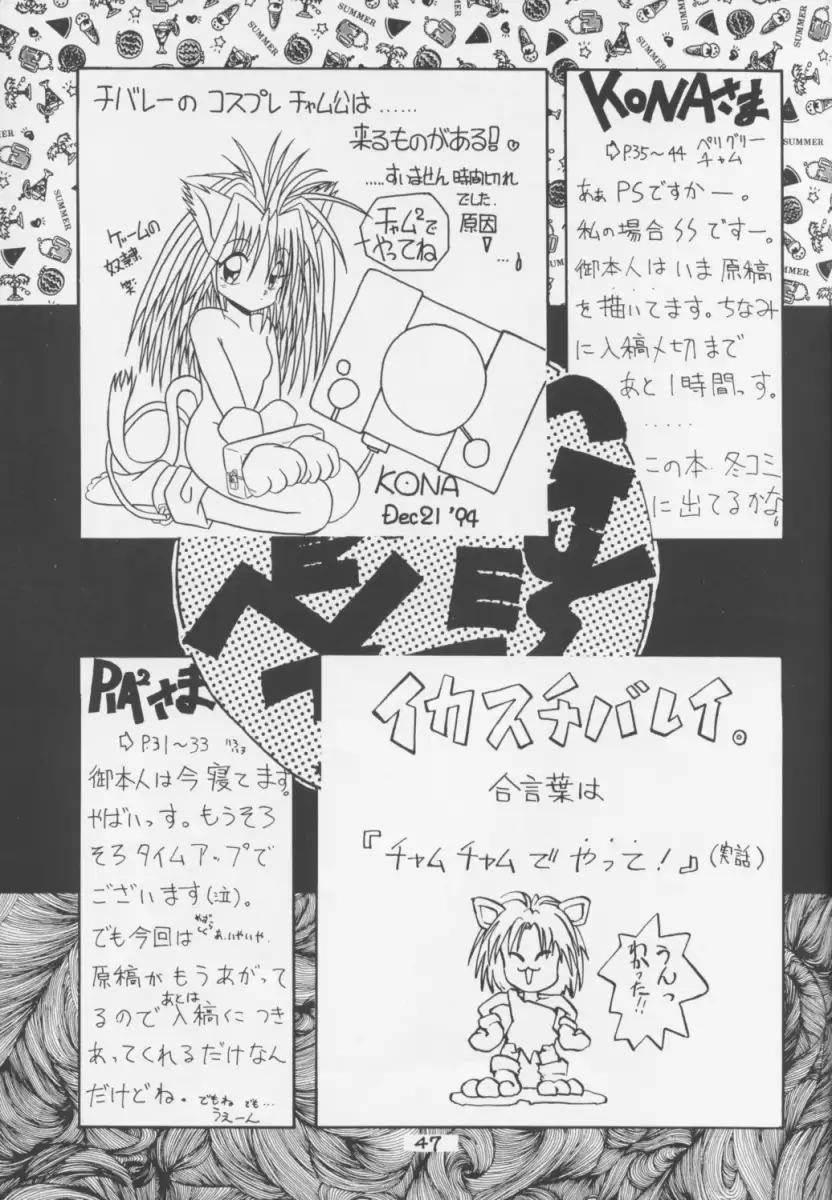 チバレーの コスプレ チャム公は……
来るものがある!!♥
……すいません 時間切れ
でした.
原因
チャム²で
やってね
ゲームの
奴隷
笑
KONA
Dec 21 '94
KONAさま
⇨P.35～44 ペリグリー
チャム
あぁ PSですかー。
私の場合SSですー。
御本人はいま原稿
を描いてます。ちなみ
に入稿〆切まで
あと1時間っす。
……
この本、冬コミ
に出てるかな。
PIA²さま
⇨P.31～33
御本人は今寝てます。
やばいっす。もうそろ
そろタイムアップで
ございます(泣)。
でも今回は
原稿がもうあがって
るので あとは 入稿につき
あってくれるだけなん
だけどね。
でもね でも…
うえーん
イカスチバレイ。
合言葉は
『チャムチャムで やって!』(実話)
うんっ
わかった!!
SUMMER
47